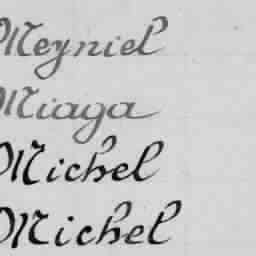 Meyniel
Miaga
Michel
Michel